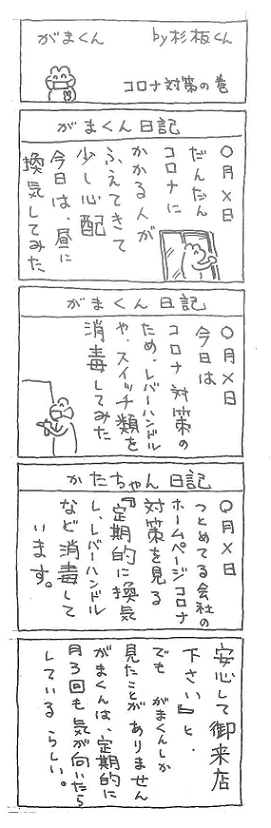 がまくん
by杉板くん
コロナ対策の巻
がまくん日記
〇月×日
だんだん
コロナに
かかる人が
ふえてきて
少し心配
今日は、昼に
換気してみた
がまくん日記
〇月×日
今日は
コロナ対策の
ため、レバーハンドル
や、スイッチ類を
消毒してみた
かたちゃん日記
〇月×日
つとめてる会社の
ホームページコロナ
対策を見る
『定期的に換気
し、レバーハンドル
など消毒して
います。
安心して御来店
下さい』と、
でも がまくんしか
見たことがありません
がまくんは、定期的に
月3回も気が向いたら
しているらしい。